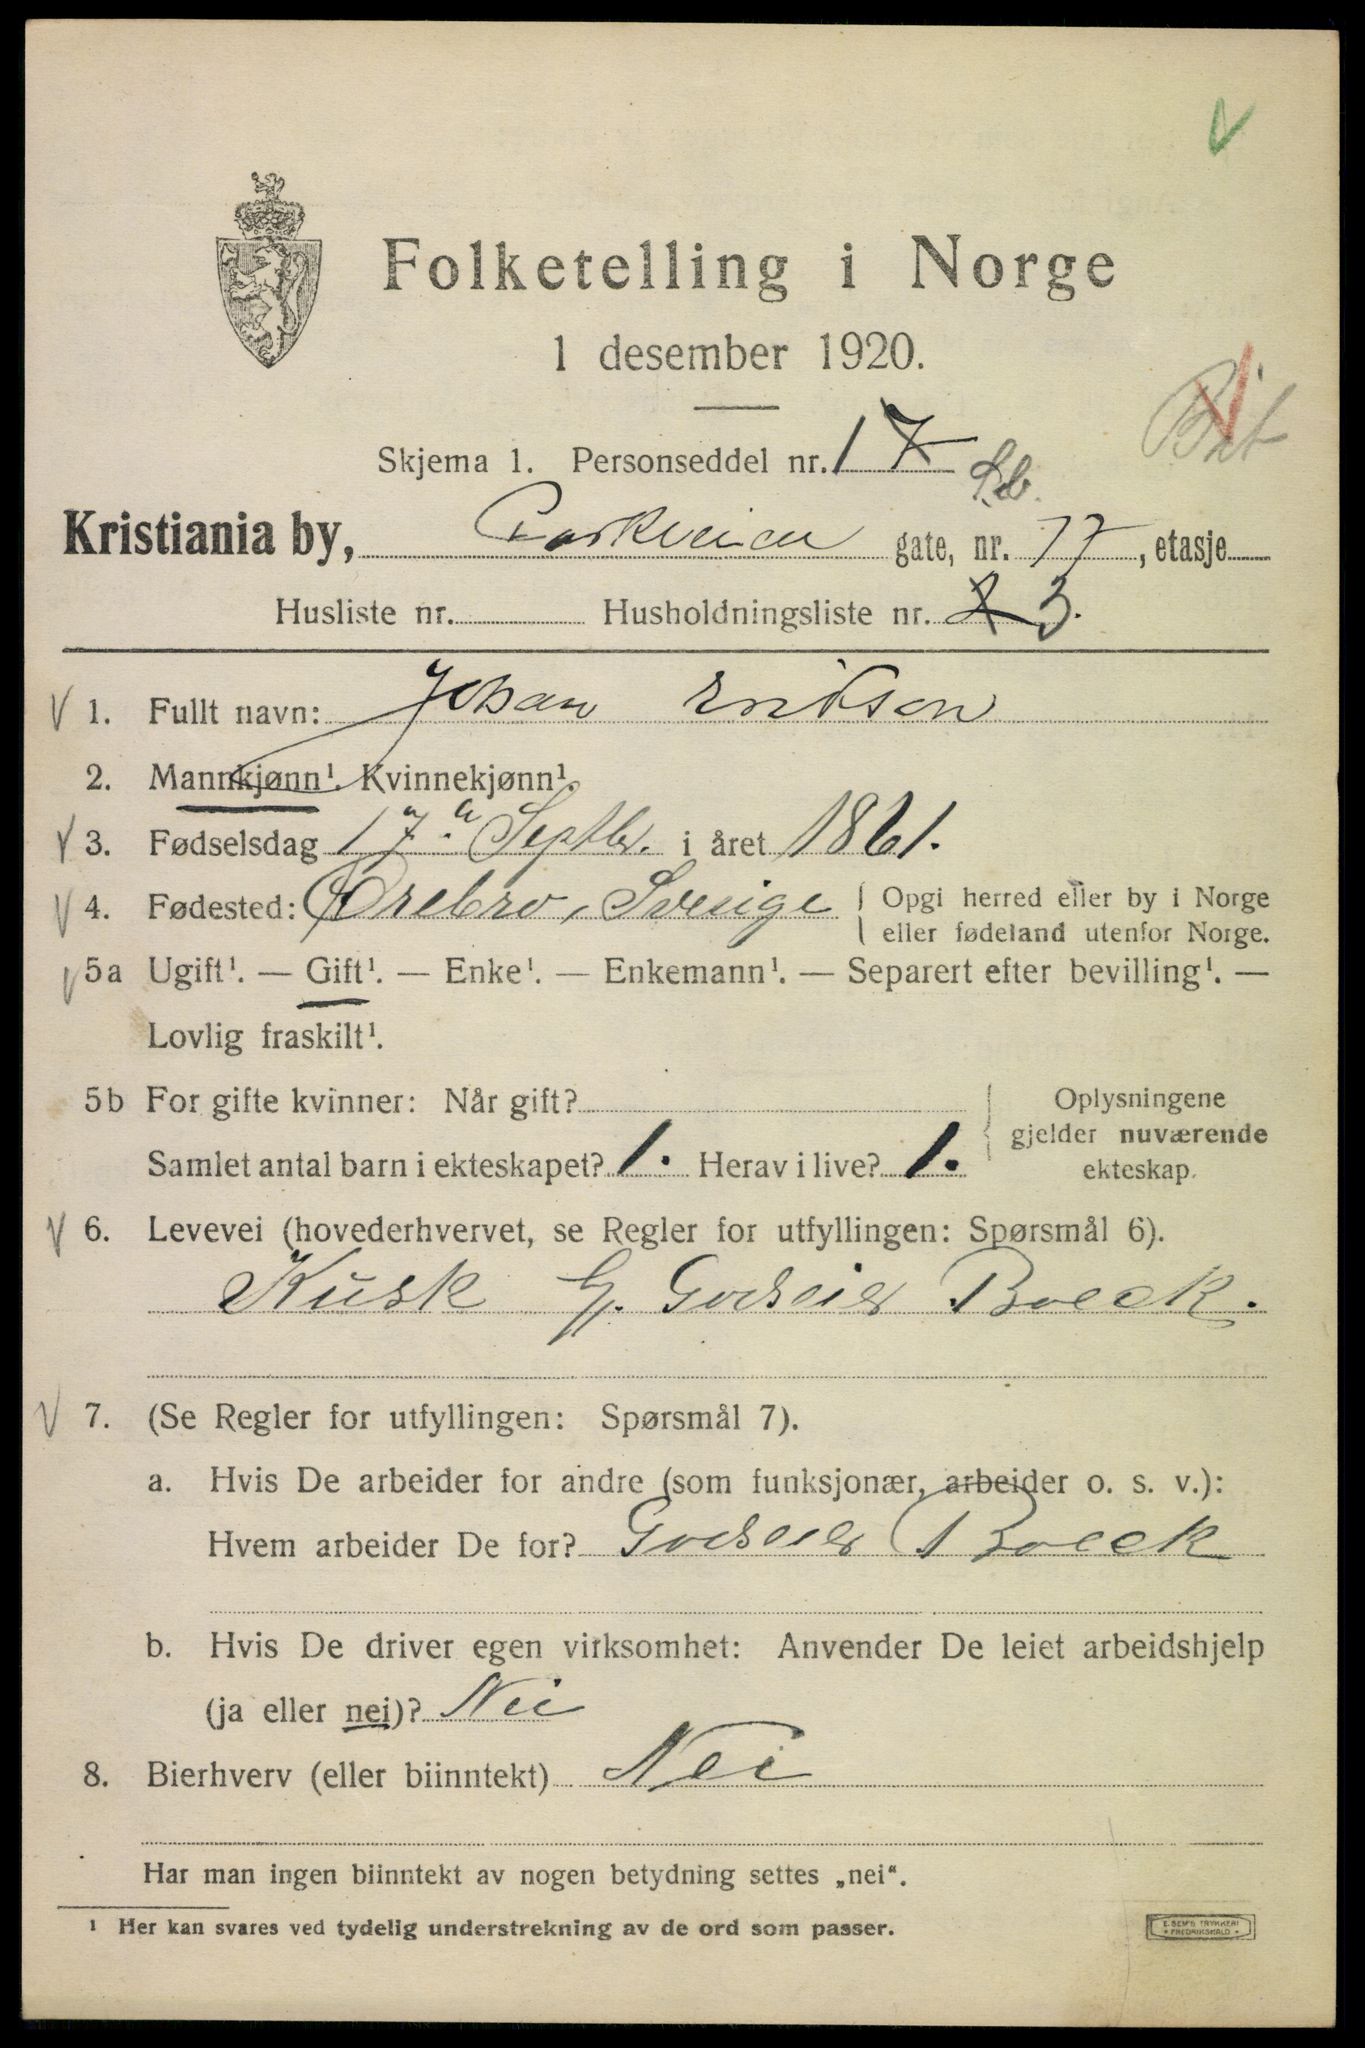 Folketelling i Norge
1 desember 1920.
Skjema 1. Personseddel nr. 1 7
Kristiania by, Parkveien gate, nr. 77, etasje
Husliste nr. Husholdningsliste nr. 2 3.
1. Fullt navn: Johan Erikson
2. Mannkjønn¹. Kvinnekjønn¹.
3. Fødselsdag 17de Septbr. i året 1861.
4. Fødested: Ørebro, Sverige { Opgi herred eller by i Norge
eller fødeland utenfor Norge.
5a Ugift¹. — Gift¹. — Enke¹. — Enkemann¹. — Separert efter bevilling¹. —
Lovlig fraskilt¹.
5b For gifte kvinner: Når gift? { Oplysningene
gjelder nuværende
Samlet antal barn i ekteskapet? 1. Herav i live? 1.
ekteskap.
6. Levevei (hovederhvervet, se Regler for utfyllingen: Spørsmål 6).
Kusk hj. Godseier Boeck.
7. (Se Regler for utfyllingen: Spørsmål 7).
a. Hvis De arbeider for andre (som funksjonær, arbeider o. s. v.):
Hvem arbeider De for? Godseier Boeck
b. Hvis De driver egen virksomhet: Anvender De leiet arbeidshjelp
(ja eller nei)? Nei
8. Bierhverv (eller biinntekt) Nei
Har man ingen biinntekt av nogen betydning settes „nei“.
¹ Her kan svares ved tydelig understrekning av de ord som passer.
E. SEM'S TRYKKERI
FREDRIKSHALD